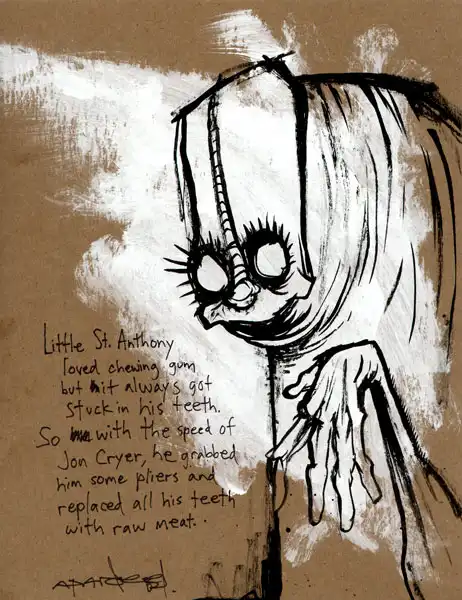 Little St. Anthony
loved chewing gum
but it always got
stuck in his teeth.
So with the speed of
Jon Cryer, he grabbed
him some pliers and
replaced all his teeth
with raw meat..